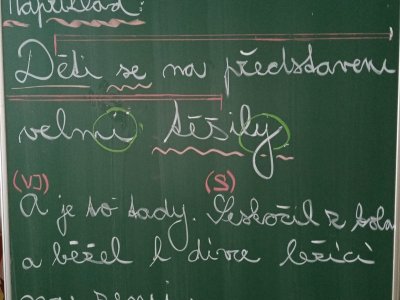 Například:
Děti se na představení
velmi těšily
(VJ) (S)
A je to tady. Seskočil z kola
a běžel k dívce ležící